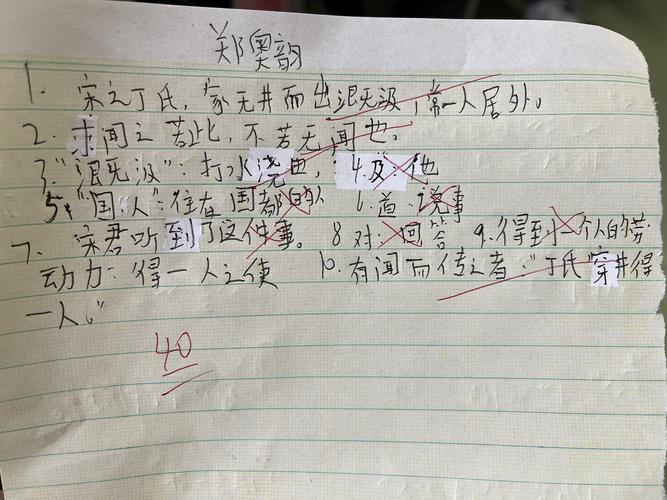 郑奥韵
1. 宋之丁氏,家无井而出溉无汲,常一人居外。
2. 求闻之若此,不若无闻也。
3."溉无汲":打水浇田, 4.及:他
5."国人":住在国都的人 6.道:说事
7. 宋君听到了这件事。 8 对:回答 9.得到一个人的劳
动力:得一人之使 10.有闻而传之者:"丁氏穿井得
一人。"
40